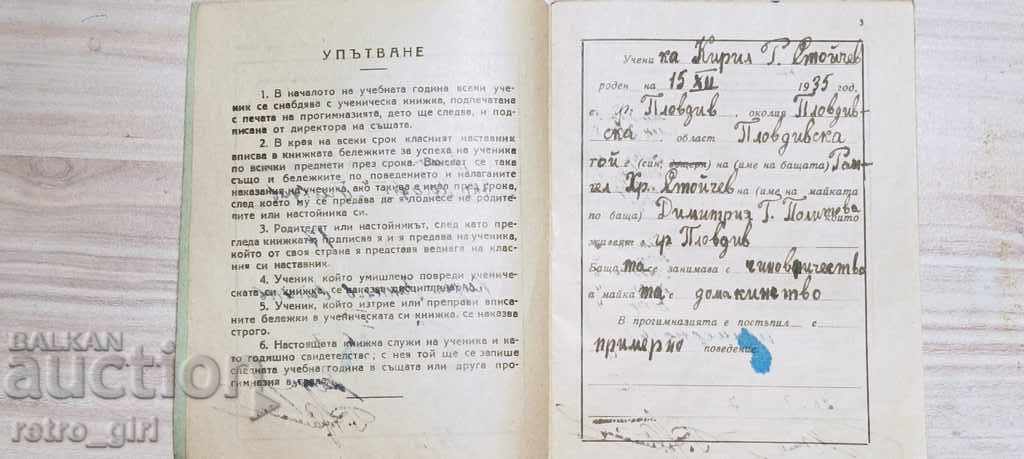 УПЪТВАНЕ
1. В началото на учебната година всеки уче-
ник се снабдява с ученическа книжка, подпечатана
с печата на прогимназията, дето ще следва, и под-
писана от директора на същата.
2. В края на всеки срок класният наставник
вписва в книжката бележките за успеха на ученика
по всички предмети през срока. Внасят се така
също и бележките по поведението и налаганите
наказания на ученика, ако такива е имал през срока,
след което му се предава да я поднесе на родите-
лите или настойника си.
3. Родителят или настойникът, след като пре-
гледа книжката, подписва я и я предава на ученика,
който от своя страна я представя веднага на клас-
ния си наставник.
4. Ученик, който умишлено повреди учениче-
ската си книжка, се наказва дисциплинарно.
5. Ученик, който изтрие или преправи вписа-
ните бележки в ученическата си книжка, се наказва
строго.
6. Настоящата книжка служи на ученика и ка-
то годишно свидетелство; с нея той ще се запише
следната учебна година в същата или друга про-
гимназия в
3
Учени ка Кирил Г. Стойчев
роден на 15 XII 1935 год.
с. гр. Пловдив околия Пловдив-
ска област Пловдивска
той е (син, дъщеря) на (име на бащата)
Хр. Стойчев на (име на майката
по баща) Димитрия Г. които
живеят в гр Пловдив
Баща та се занимава с чиновничество
а майка та с домакинство
В прогимназията е постъпил с
примерно поведение.
БАЛКАН
auction
retro_girl